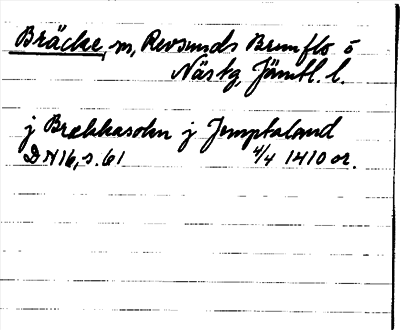 Bräcke, sn, Revsunds Brunflo o
Näs tg, Jämtl. l.
j Brekkasokn j Jemptaland
DN 16, s. 61 4/4 1410 or.